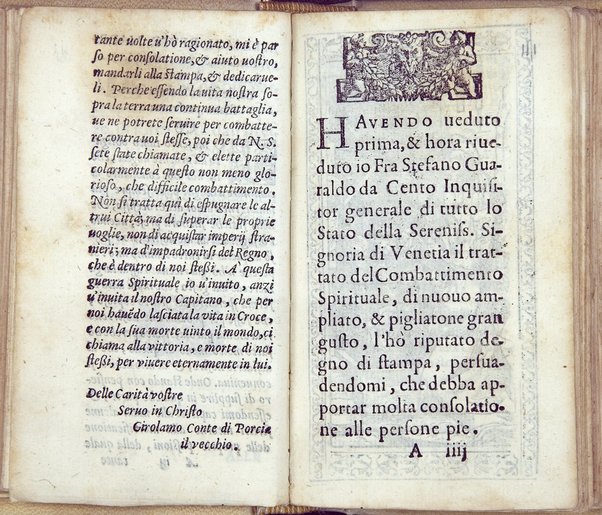 tante uolte u'hò ragionato, mi è par
so per consolatione, & aiuto uostro,
mandarli alla stampa, & dedicarue-
li. Perche essendo la uita nostra so-
pra la terra una continua battaglia,
ue ne potrete seruire per combatte-
re contra uoi stesse, poi che da N. S.
sete state chiamate, & elette parti-
colarmente à questo non meno glo-
rioso, che difficile combattimento.
Non si tratta quì di espugnare le al-
trui Città; ma di superar le proprie
uoglie, non di acquistar imperij stra-
nieri; ma d'impadronirsi del Regno,
che è dentro di noi stessi. A' questa
guerra Spirituale io u'inuito, anzi
u'inuita il nostro Capitano, che per
noi hauēdo lasciata la vita in Croce,
e con la sua morte uinto il mondo, ci
chiama alla vittoria, e morte di noi
stessi, per viuere eternamente in lui.
Delle Carità vostre
Seruo in Christo
Girolamo Conte di Porcia
il vecchio.
HAVENDO ueduto
prima, & hora riue
duto io Fra Stefano Gua
raldo da Cento Inquisi
tor generale di tutto lo
Stato della Sereniss. Si-
gnoria di Venetia il trat-
tato del Combattimento
Spirituale, di nuouo am
pliato, & pigliatone gran
gusto, l'hò riputato de-
gno di stampa, persua-
dendomi, che debba ap-
portar molta consolatio
ne alle persone pie.
A iiij